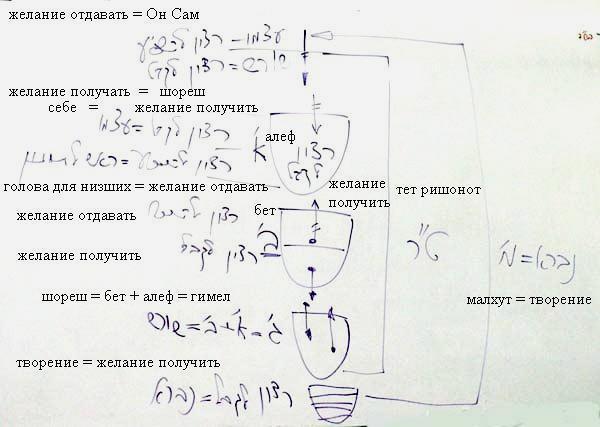 желание отдавать = Он Сам
עצמו = רצון להשפיע
שורש = רצון לקבל
желание получать = шореш
себе = желание получить
רצון לקבל = עצמו
алеф
א'
רצון לקבל
רצון להשפיע = ראש
голова для низших = желание отдавать
желание получить
тет ришонот
бет
желание отдавать
רצון להשפיע
ב'
רצון לקבל
желание получить
ט"ר
נברא = מ'
малхут = творение
шореш = бет + алеф = гимел
ג' = א' + ב' = שורש
творение = желание получить
רצון לקבל = נברא